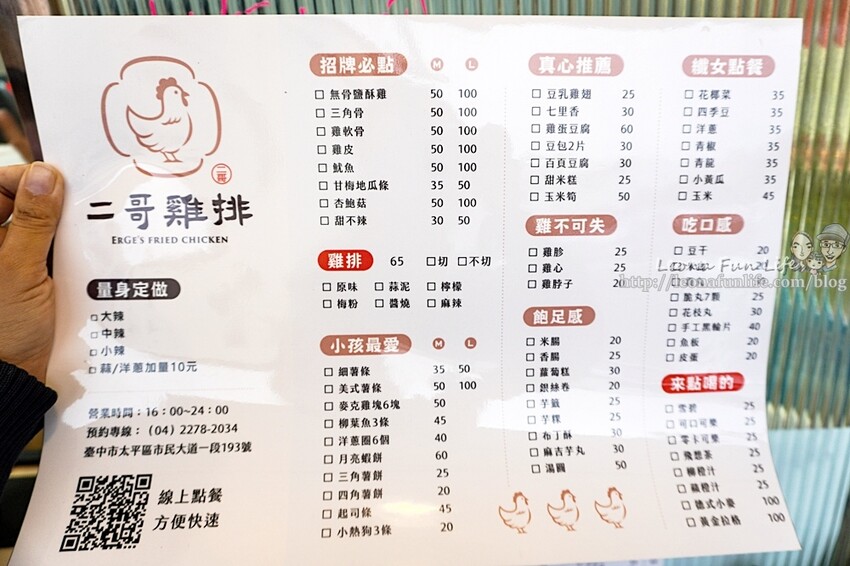 二哥
二哥雞排
ERGE'S FRIED CHICKEN
量身定做
□ 大辣
□ 中辣
□ 小辣
□ 蒜/洋蔥加量10元
營業時間：16：00~24：00
預約專線：(04) 2278-2034
臺中市太平區市民大道一段193號
線上點餐
方便快速
招牌必點 M L
□ 無骨鹽酥雞 50 100
□ 三角骨 50 100
□ 雞軟骨 50 100
□ 雞皮 50 100
□ 魷魚 50 100
□ 甘梅地瓜條 35 50
□ 杏鮑菇 50 100
□ 甜不辣 30 50
雞排 65 □切 □不切
□ 原味 □ 蒜泥 □ 檸檬
□ 梅粉 □ 醬燒 □ 麻辣
小孩最愛 M L
□ 細薯條 35 50
□ 美式薯條 50 100
□ 麥克雞塊6塊 50
□ 柳葉魚3條 45
□ 洋蔥圈6個 40
□ 月亮蝦餅 60
□ 三角薯餅 25
□ 四角薯餅 20
□ 起司條 45
□ 小熱狗3條 20
真心推薦
□ 豆乳雞翅 25
□ 七里香 30
□ 雞蛋豆腐 60
□ 豆包2片 30
□ 百頁豆腐 30
□ 甜米糕 25
□ 玉米筍 50
雞不可失
□ 雞胗 25
□ 雞心 25
□ 雞脖子 20
飽足感
□ 米腸 20
□ 香腸 25
□ 蘿蔔糕 30
□ 銀絲卷 20
□ 芋籤 25
□ 芋粿 25
□ 布丁酥 30
□ 麻吉芋丸 30
□ 湯圓 50
纖女點餐
□ 花椰菜 35
□ 四季豆 35
□ 洋蔥 35
□ 青椒 35
□ 青龍 35
□ 小黃瓜 35
□ 玉米 45
吃口感
□ 豆干 20
□ 脆丸7顆 25
□ 花枝丸 30
□ 手工黑輪片 40
□ 魚板 20
□ 皮蛋 20
來點喝的
□ 雪碧 25
□ 可口可樂 25
□ 零卡可樂 25
□ 飛想茶 25
□ 柳橙汁 25
□ 蘋橙汁 25
□ 德式小麥 100
□ 黃金拉格 100
Leona Fun Life
http://leonafunlife.com/blog